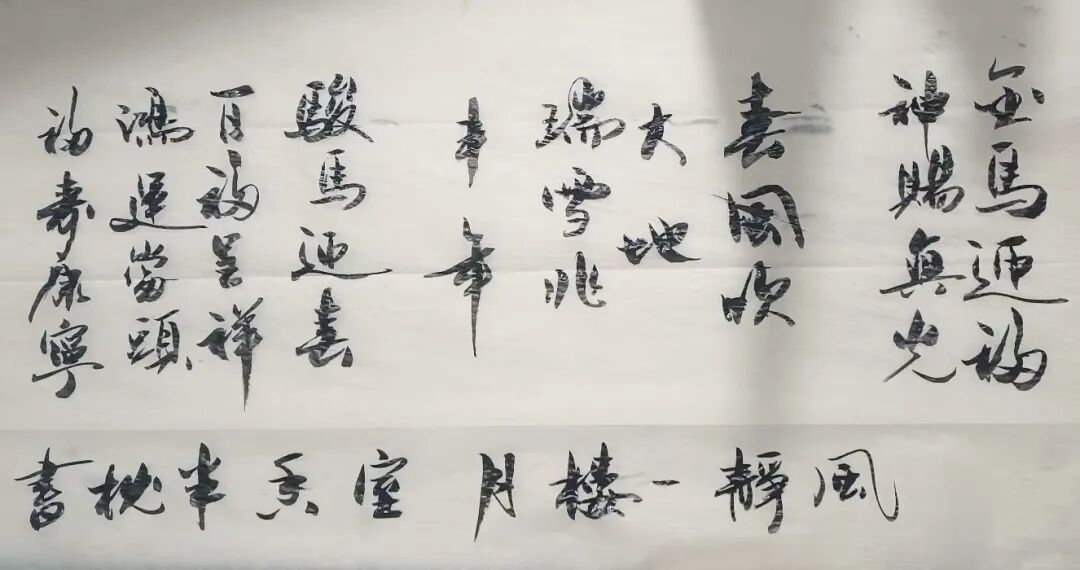 金馬迎福
神賜真光
春風吹
大地
瑞雪兆
丰年
駿馬迎春
百福呈祥
鴻運當頭
福壽康寧
風靜一樓月室香半枕書